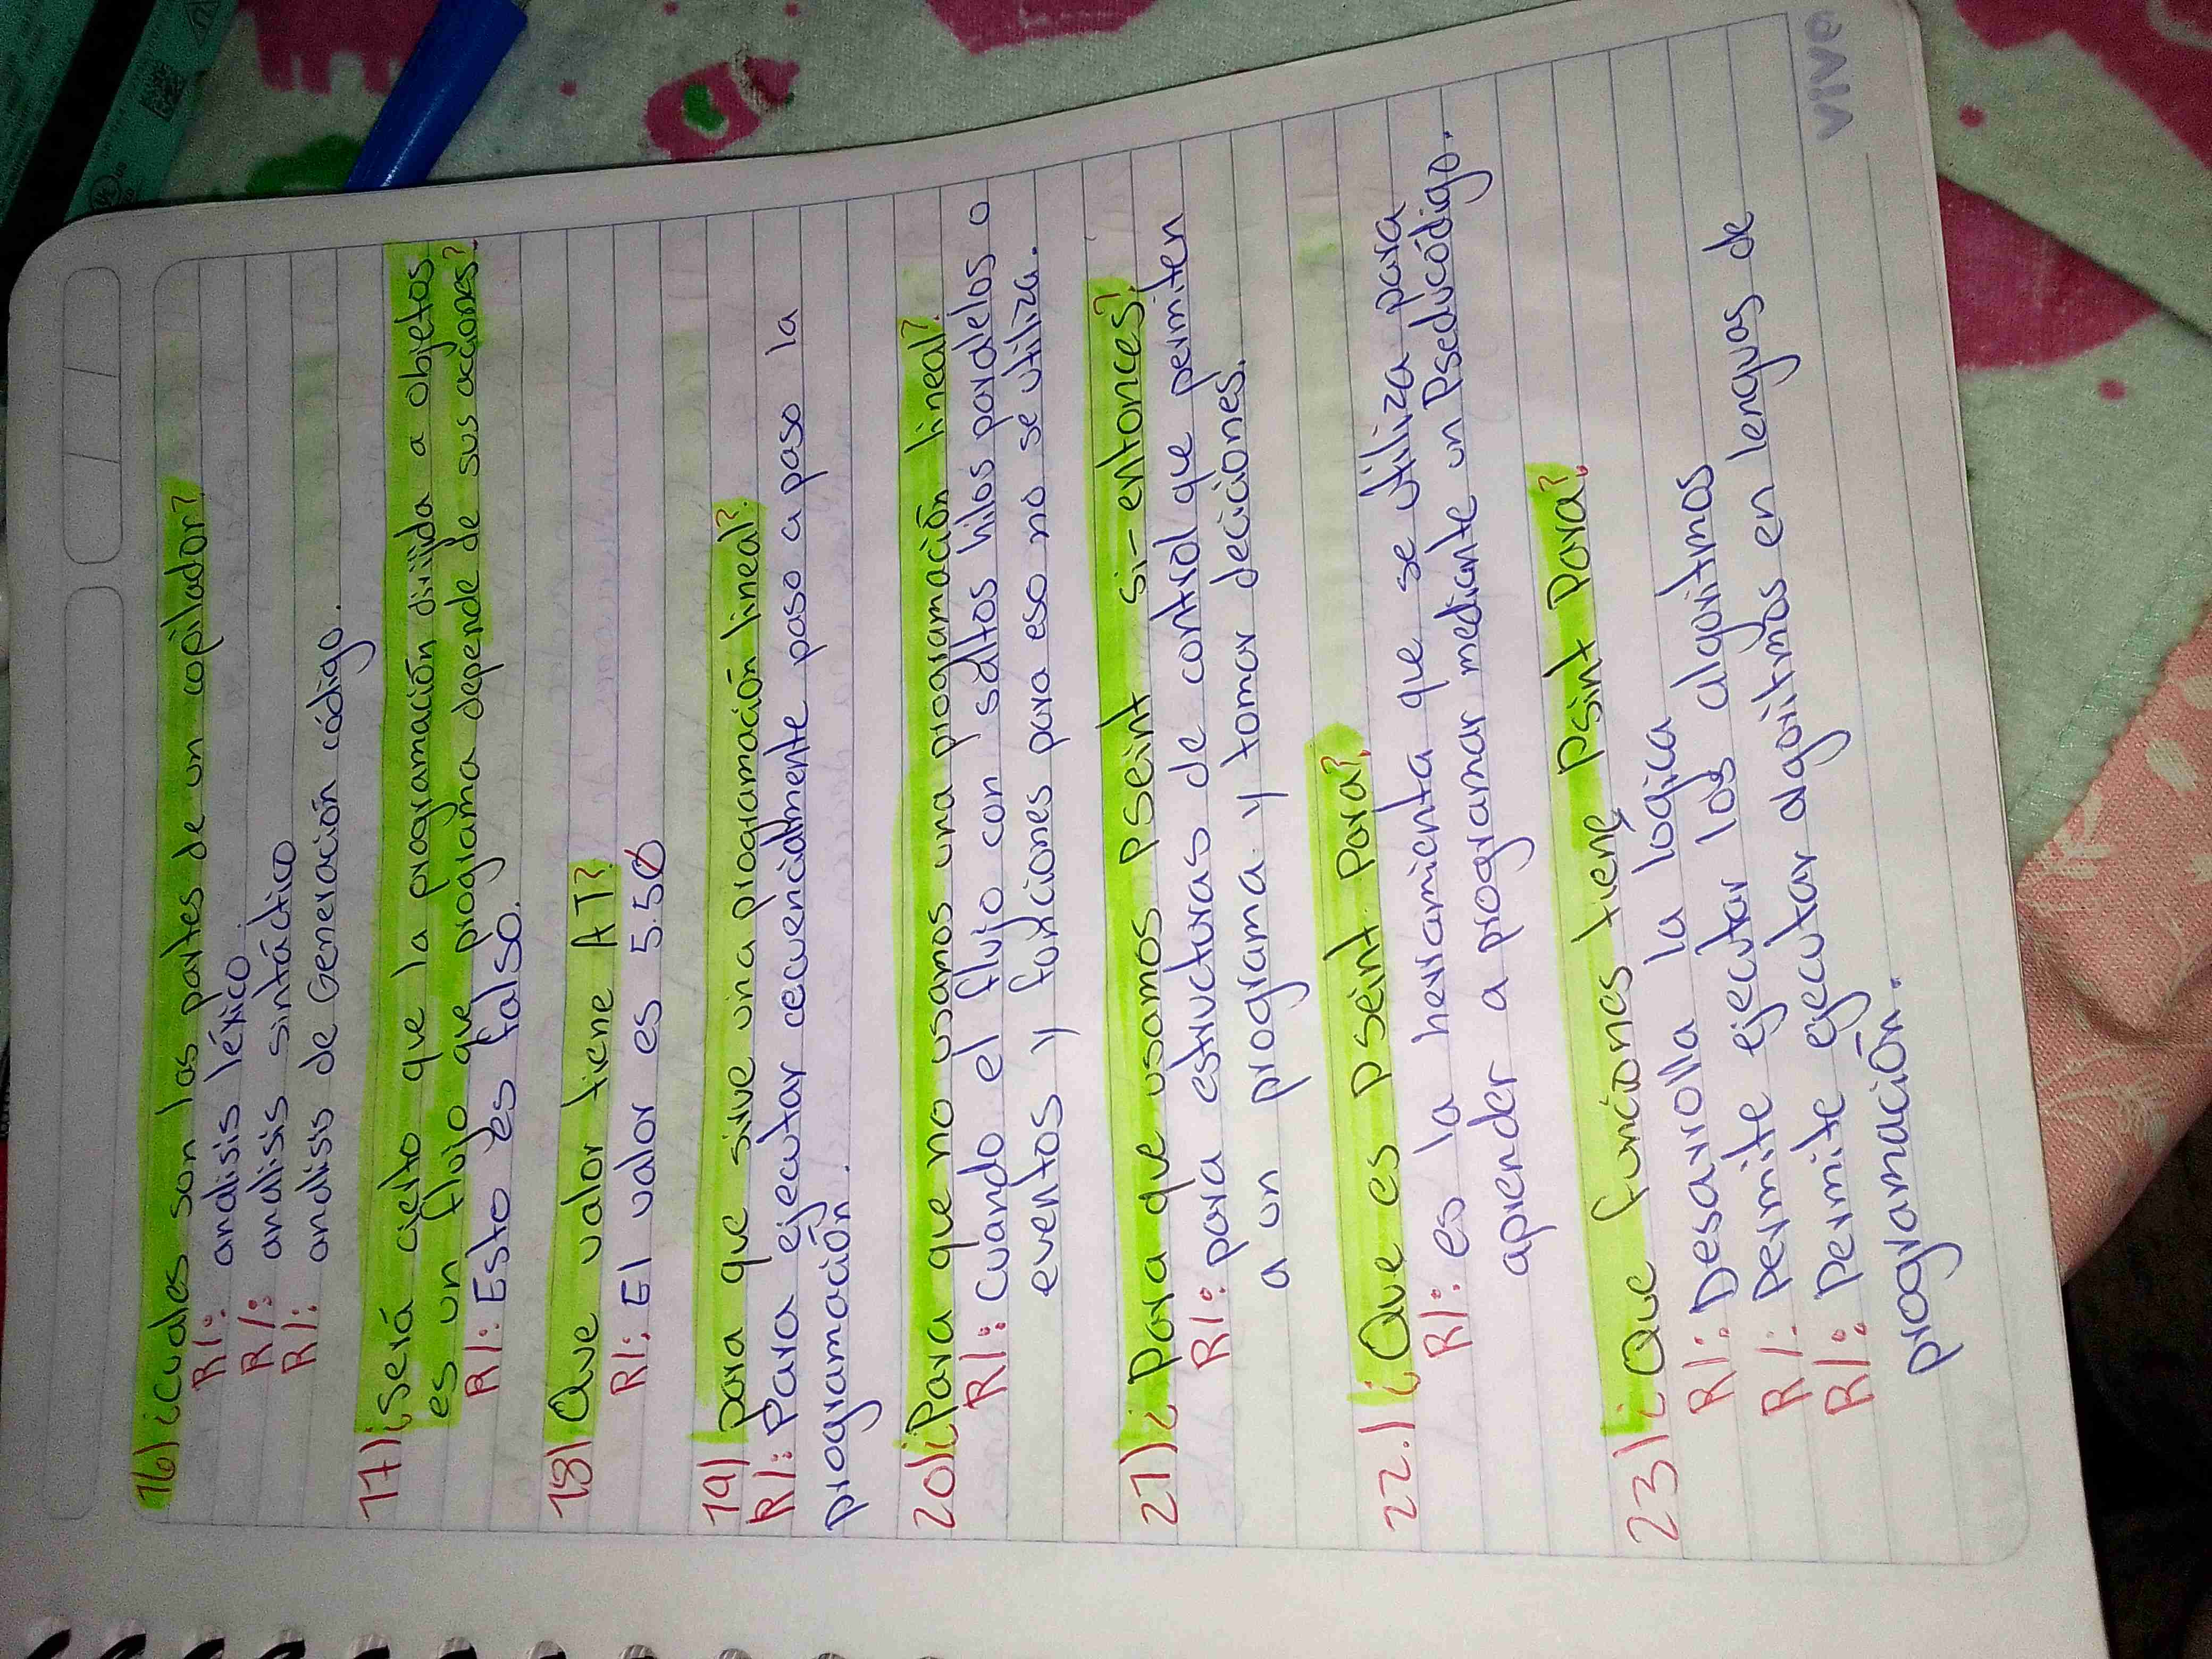 16) ¿Cuales son las partes de un copilador?
R/: analisis léxico.
R/: analisis sintáctico
R/: analiss de Generación código.
17) ¿será cierto que la programación dirijida a objetos
es un flujo que programa depende de sus acciones?
R/: Esto es falso.
18) Que valor tiene AT?
R/: El valor es 5.50
19) para que sirve una programación lineal?
R/: Para ejecutar cecuencialmente paso a paso la
programación.
20) ¿Para que no usamos una programación lineal?
R/: Cuando el flujo con saltos hilos paralelos o
eventos y funciones para eso no se utiliza.
21) ¿Para que usamos pseint si-entonces?
R/: para estructuras de control que permiten
a un programa y tomar deciciones.
22.) ¿Que es pseint Para?
R/: es la herramienta que se utiliza para
aprender a programar mediante un Pseducódigo.
23) ¿Que funciones tiene Psint Para?
R/: Desarrolla la lógica
R/: permite ejecutar los algoritmos
R/: Permite ejecutar algoritmos en lenguas de
programación.
vive